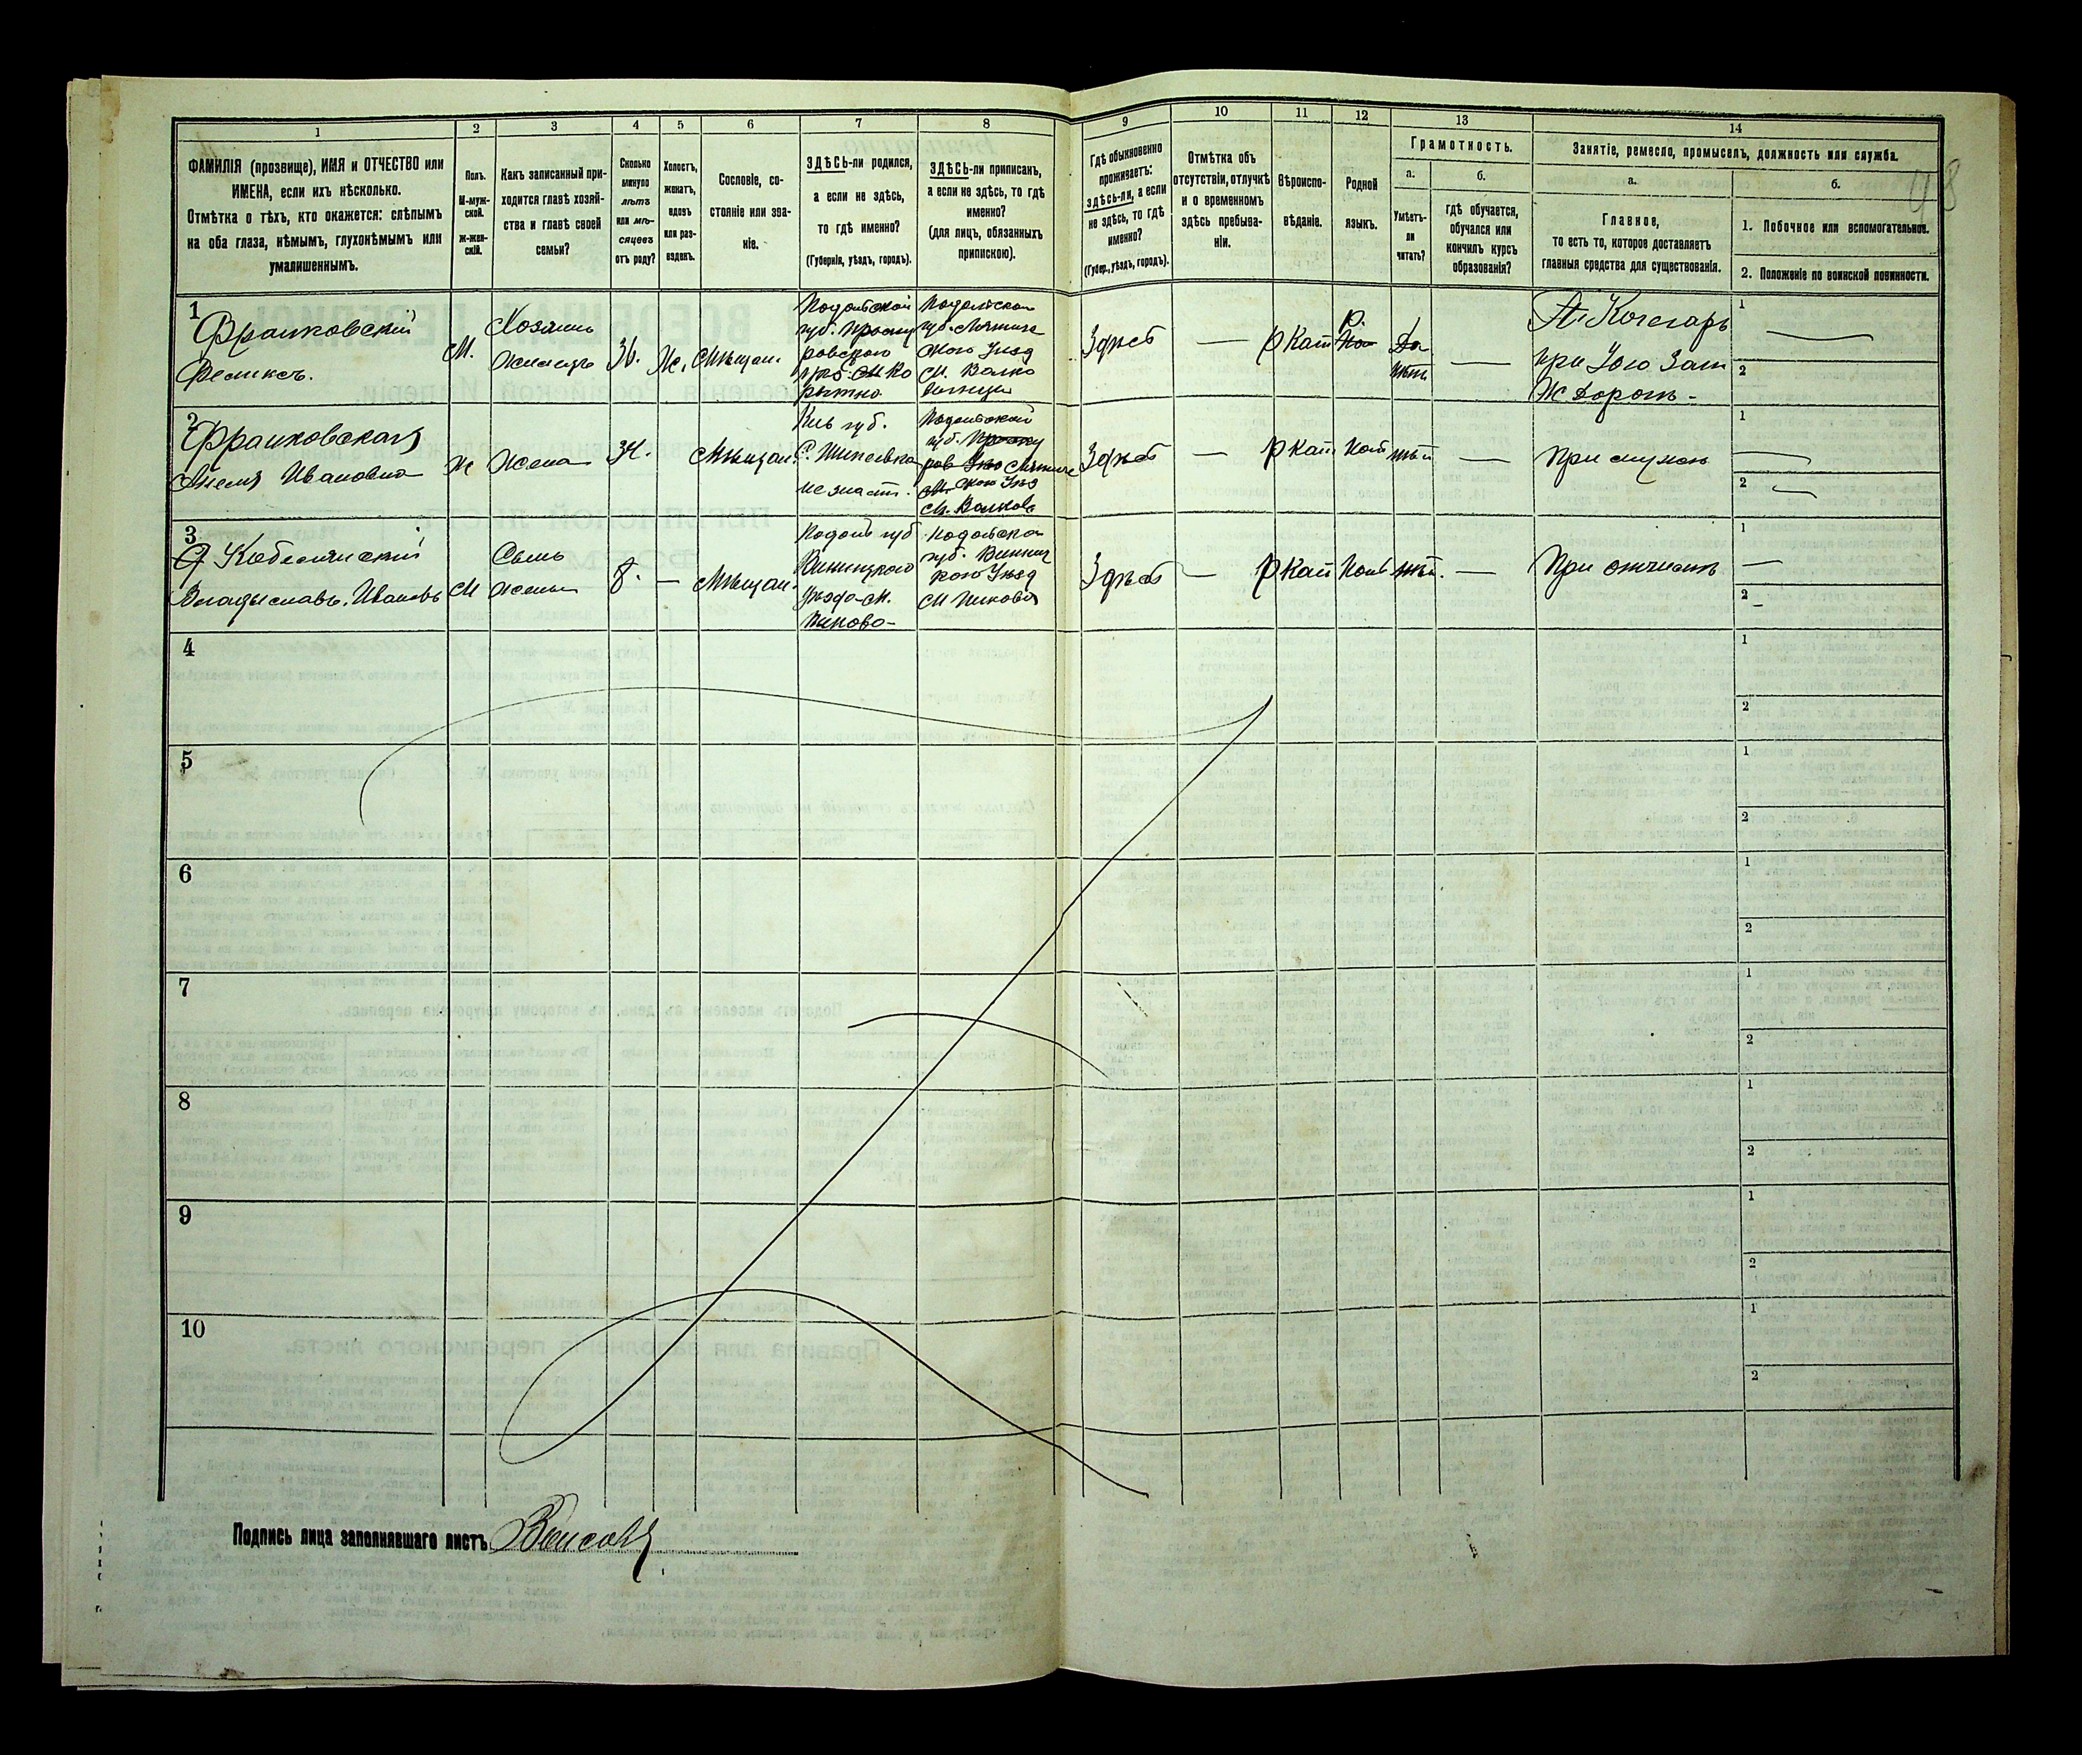 1 2 3 4 5 6 7 8 9 10 11 12 13 14
ФАМИЛІЯ (прозвище), ИМЯ и ОТЧЕСТВО или
ИМЕНА, если ихъ нѣсколько.
Отмѣтка о тѣхъ, кто окажется: слѣпымъ
на оба глаза, нѣмымъ, глухонѣмымъ или
умалишеннымъ.
Полъ.
М-муж-
ской.
ж-жен-
скій.
Какъ записанный при-
ходится главѣ хозяй-
ства и главѣ своей
семьи?
Сколько
минуло
лѣтъ
или мѣ-
сяцевъ
отъ роду?
Холостъ,
женатъ,
вдовъ
или раз-
веденъ.
Сословіе, со-
стояніе или зва-
ніе.
ЗДѢСЬ-ли родился,
а если не здѣсь,
то гдѣ именно?
(Губернія, уѣздъ, городъ).
ЗДѢСЬ-ли приписанъ,
а если не здѣсь, то гдѣ
именно?
(для лицъ, обязанныхъ
припискою).
Гдѣ обыкновенно
проживаетъ:
здѣсь-ли, а если
не здѣсь, то гдѣ
именно?
(Губер., уѣздъ, городъ).
Отмѣтка объ
отсутствіи, отлучкѣ
и о временномъ
здѣсь пребыва-
ніи.
Вѣроиспо-
вѣданіе.
Родной
языкъ.
Грамотность.
а.
Умѣетъ-
ли
читать?
б.
гдѣ обучается,
обучался или
кончилъ курсъ
образованія?
Занятіе, ремесло, промыселъ, должность или служба.
а.
Главное,
то есть то, которое доставляетъ
главныя средства для существованія.
б.
1. Побочное или вспомогательное.
2. Положеніе по воинской повинности.
1
Франковскій
Феликсъ.
М.
Хозяинъ
36.
Ж.
Мѣщан.
Подольской
губ. Проску
ровского
Подольской
М. Волко
Здѣсь
—
р Кат
Да
—
Кочегаръ
при Юго Зап
Ж. Дорогѣ -
1
2
2
Франковская
Анеля Ивановна
Ж
Жена
34.
Мѣщан.
Кiев губ.
Подольской
губ.
Здѣсь
—
р Кат
Пол
нѣт
—
При мужѣ
1
2
3
Владыславъ. Ивановъ
М
Сынъ
жены
8.
—
Мѣщан.
Подол губ
Винницкого
Уѣзда м.
Пиково-
Подольско
губ. Винниц
кого Уѣзд
М Пикова
Здѣсь
—
р Кат
Пол
нѣт.
—
При отчимѣ
1
2
4
1
2
5
1
2
6
1
2
7
1
2
8
1
2
9
1
2
10
1
2
Подпись лица заполнявшаго листъ